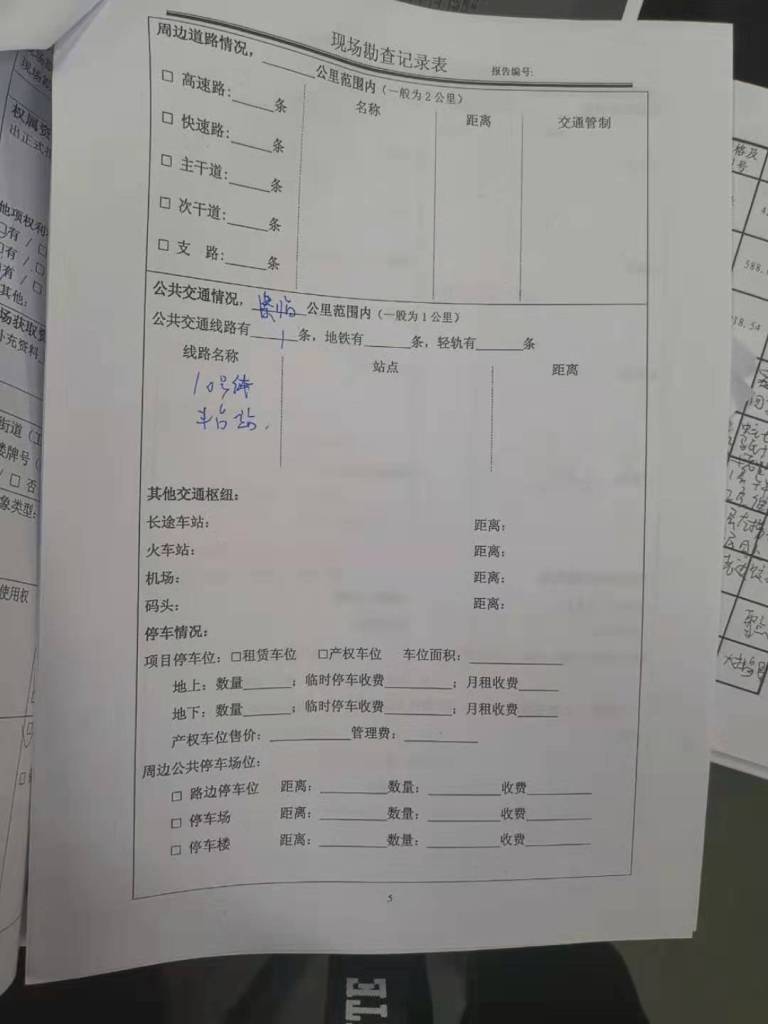 现场勘查记录表
报告编号:
周边道路情况，______公里范围内（一般为2公里）
名称 距离 交通管制
□ 高速路:____条
□ 快速路:____条
□ 主干道:____条
□ 次干道:____条
□ 支 路:____条
公共交通情况，紧临 公里范围内（一般为1公里）
公共交通线路有 1 条，地铁有______条，轻轨有______条
线路名称 站点 距离
10号线
丰台站.
其他交通枢纽：
长途车站： 距离：
火车站： 距离：
机场： 距离：
码头： 距离：
停车情况：
项目停车位：□租赁车位 □产权车位 车位面积：____________
地上：数量______；临时停车收费________；月租收费_____
地下：数量______；临时停车收费________；月租收费_____
产权车位售价：__________管理费：_________
周边公共停车场位：
□ 路边停车位 距离：________数量：________收费_______
□ 停车场 距离：________数量：________收费_______
□ 停车楼 距离：________数量：________收费_______
5
权属资
出正式
他项权利
□有 / □
□有 / □
□有 / □
其他：
补充资料
街道（
楼牌号（
/ □ 否
象类型：
使用权
格及
号
588.